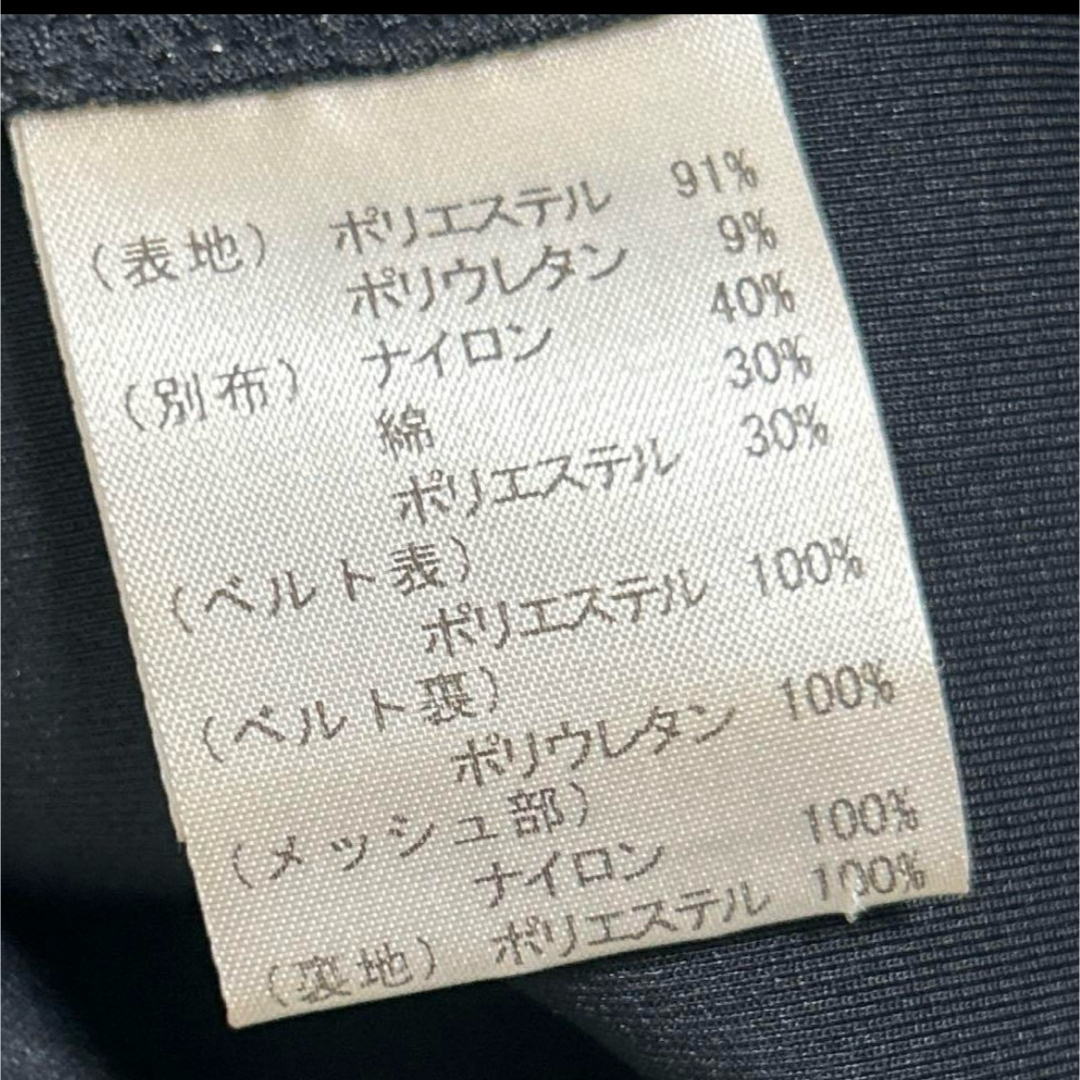 (表地) ポリエステル 91%
ポリウレタン 9%
(別布) ナイロン 40%
綿 30%
ポリエステル 30%
(ベルト表)
ポリエステル 100%
(ベルト裏)
ポリウレタン 100%
(メッシュ部)
ナイロン 100%
(裏地) ポリエステル 100%